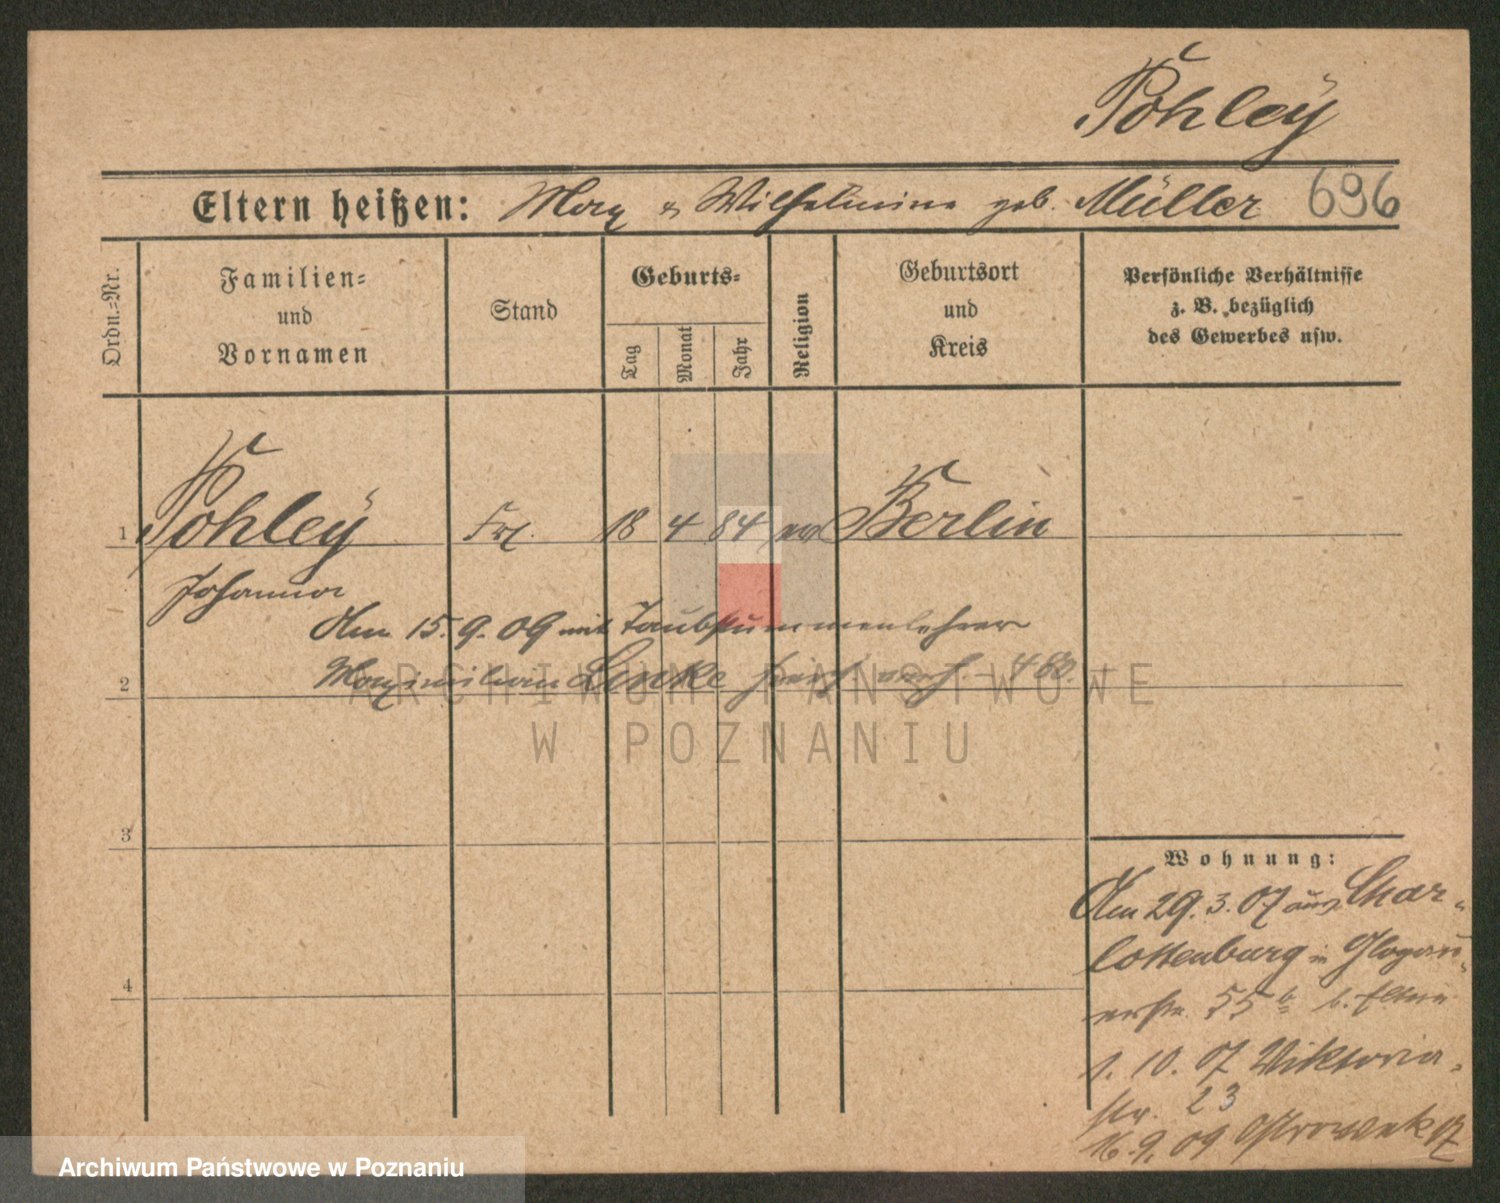 Pohley
Eltern heißen: Max & Wilhelmine geb. Müller 696
Ordn.-Nr.
Familien-
und
Vornamen
Stand
Geburts-
Tag
Monat
Jahr
Religion
Geburtsort
und
Kreis
Persönliche Verhältnisse
z. B. bezüglich
des Gewerbes usw.
1 Pohley Frl. 18 4 84 ev Berlin
Johanna
Am 15.9.09 mit Taubstummenlehrer
2 Maximilian Linke
ARCHIWUM PAŃSTWOWE
W POZNANIU
3
4
Wohnung:
Am 29.3.07 aus Char-
lottenburg in Glogau-
erstr. 55 b. Eltern
1.10.07 Viktoria-
str. 23
16.9.09
Archiwum Państwowe w Poznaniu